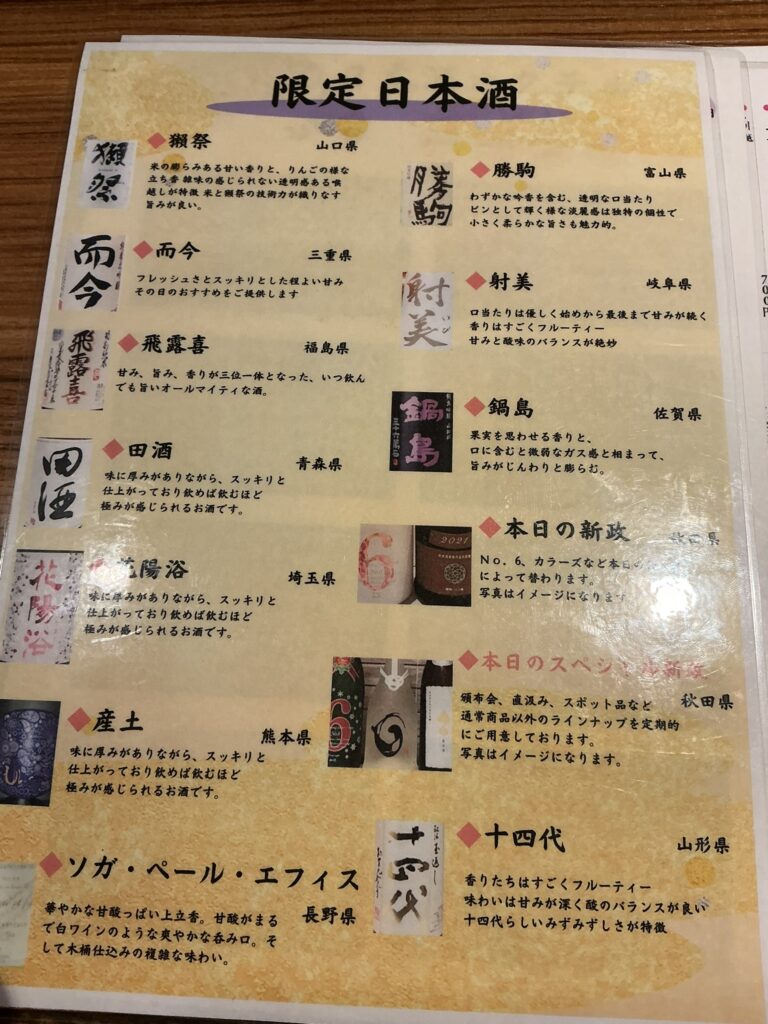 限定日本酒
獺祭
◆獺祭 山口県
米の膨らみある甘い香りと、りんごの様な
立ち香 雑味の感じられない透明感ある喉
越しが特徴 米と獺祭の技術力が織りなす
旨みが良い。
而今
◆而今 三重県
フレッシュさとスッキリとした程よい甘み
その日のおすすめをご提供します
飛露喜
◆飛露喜 福島県
甘み、旨み、香りが三位一体となった、いつ飲ん
でも旨いオールマイティな酒。
田酒
◆田酒 青森県
味に厚みがありながら、スッキリと
仕上がっており飲めば飲むほど
極みが感じられるお酒です。
花陽浴
◆花陽浴 埼玉県
味に厚みがありながら、スッキリと
仕上がっており飲めば飲むほど
極みが感じられるお酒です。
◆産土 熊本県
味に厚みがありながら、スッキリと
仕上がっており飲めば飲むほど
極みが感じられるお酒です。
◆ソガ・ペール・エフィス
長野県
華やかな甘酸っぱい上立香。甘酸がまる
で白ワインのような爽やかな呑み口。そ
して木桶仕込みの複雑な味わい。
勝駒
◆勝駒 富山県
わずかな吟香を含む、透明な口当たり
ピンとして輝く様な淡麗感は独特の個性で
小さく柔らかな旨さも魅力的。
射美
◆射美 岐阜県
口当たりは優しく始めから最後まで甘みが続く
香りはすごくフルーティー
甘みと酸味のバランスが絶妙
鍋島
◆鍋島 佐賀県
果実を思わせる香りと、
口に含むと微弱なガス感と相まって、
旨みがじんわりと膨らむ。
6
2021
◆本日の新政 秋田県
No．6、カラーズなど本日の
によって替わります。
写真はイメージになります
6
◆本日のスペシャル新政
秋田県
頒布会、直汲み、スポット品など
通常商品以外のラインナップを定期的
にご用意しております。
写真はイメージになります。
十四代
◆十四代 山形県
香りたちはすごくフルーティー
味わいは甘みが深く酸のバランスが良い
十四代らしいみずみずしさが特徴